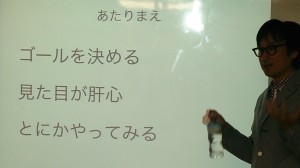 あたりまえ
ゴールを決める
見た目が肝心
とにかやってみる